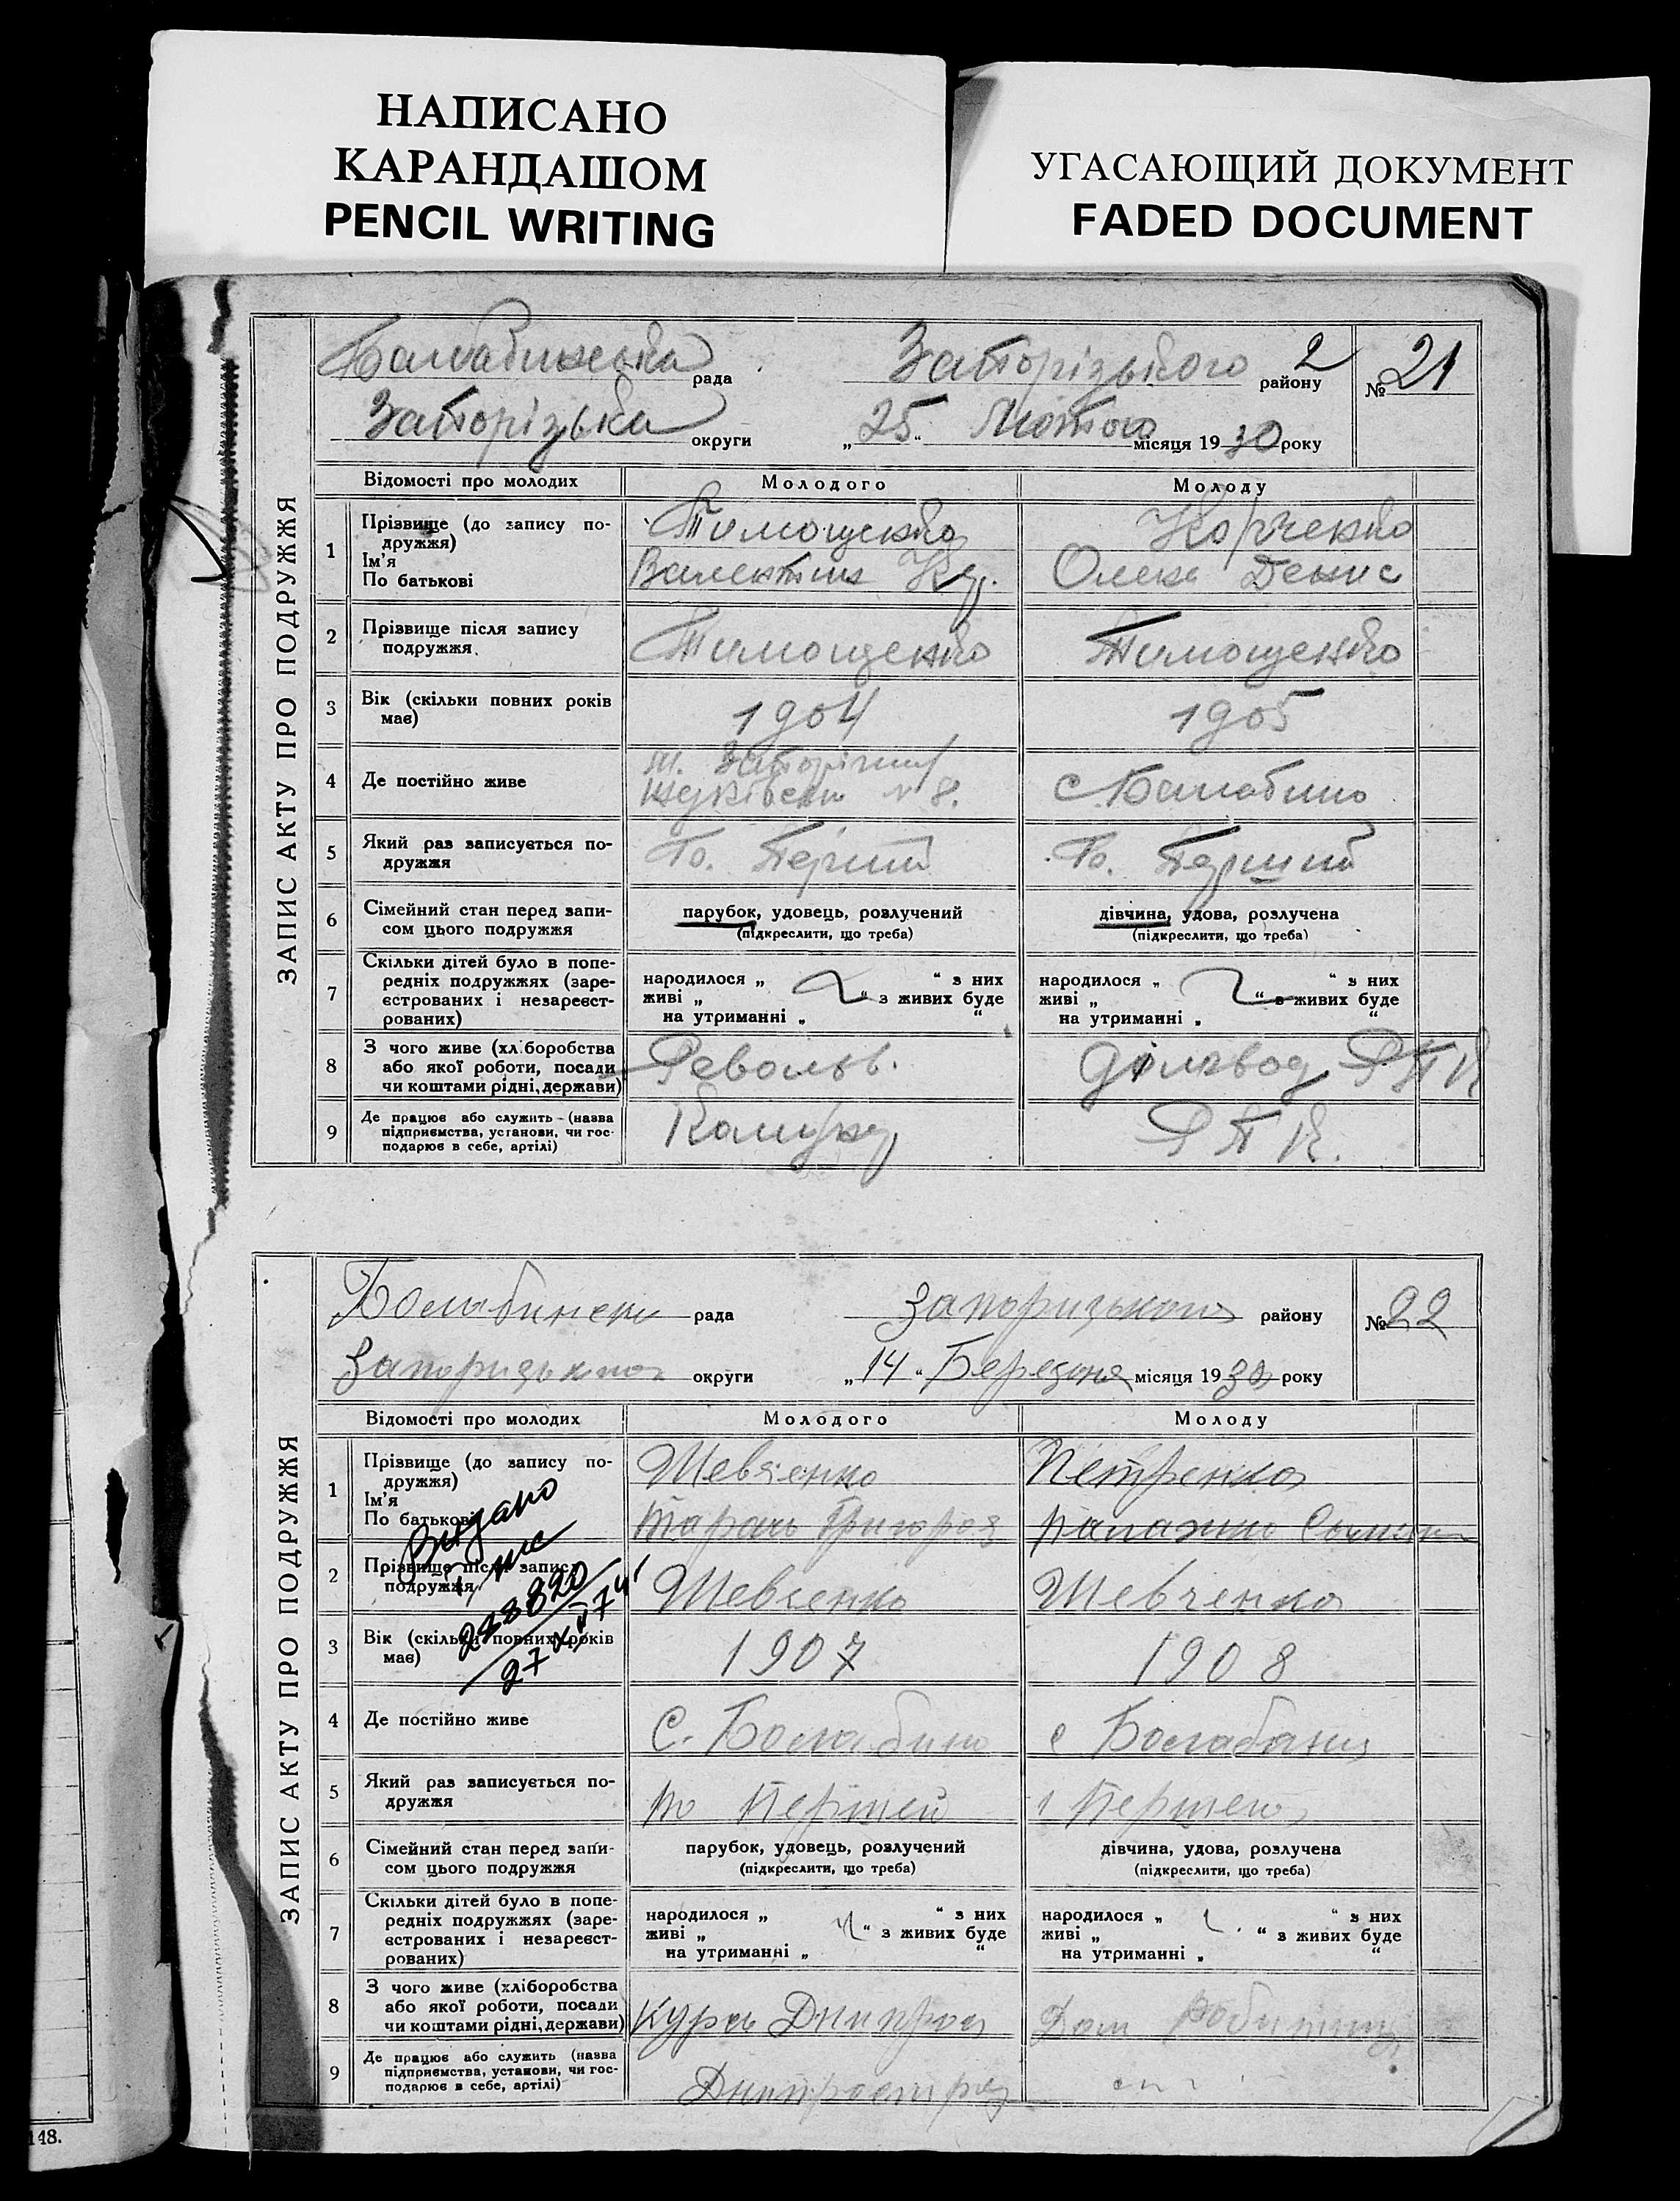 НАПИСАНО
КАРАНДАШОМ
PENCIL WRITING
УГАСАЮЩИЙ ДОКУМЕНТ
FADED DOCUMENT
ЗАПИС АКТУ ПРО ПОДРУЖЖЯ
Балабинська рада Запорізького району 2 № 21
Запорізька округи „25“ Лютого місяця 1930 року
Відомості про молодих Молодого Молоду
1 Прізвище (до запису по-дружжя) Тимощенко Корченко
Ім'я
По батькові Валентин Олена Денис
2 Прізвище після запису подружжя Тимощенко Тимощенко
3 Вік (скільки повних років має) 1904 1905
4 Де постійно живе м. Запоріжжя № 8. с. Балабино
5 Який раз записується по-дружжя По. Перший По. Перший
6 Сімейний стан перед запи-сом цього подружжя парубок, удовець, розлучений дівчина, удова, розлучена
(підкреслити, що треба) (підкреслити, що треба)
7 Скільки дітей було в попе-редніх подружжях (заре-єстрованих і незареєст-рованих)
народилося „ “ з них народилося „ “ з них
живі „ “ з живих буде живі „ “ з живих буде
на утриманні „ “ на утриманні „ “
8 З чого живе (хліборобства або якої роботи, посади чи коштами рідні, держави) Діловод РПК
9 Де працює або служить (назва підприємства, установи, чи гос-подарює в себе, артілі) Комунар РПК.
ЗАПИС АКТУ ПРО ПОДРУЖЖЯ
рада району № 22
округи „14“ Березня місяця 1930 року
Відомості про молодих Молодого Молоду
1 Прізвище (до запису по-дружжя) Шевченко Петренко
Ім'я
По батькові Тарась Григоров
Видано
228820
27 XII 74
2 Прізвище після запису подружжя Шевченко Шевченко
3 Вік (скільки повних років має) 1907 1908
4 Де постійно живе С. Балабино с Балабани
5 Який раз записується по-дружжя по Першей Першей
6 Сімейний стан перед запи-сом цього подружжя парубок, удовець, розлучений дівчина, удова, розлучена
(підкреслити, що треба) (підкреслити, що треба)
7 Скільки дітей було в попе-редніх подружжях (заре-єстрованих і незареєст-рованих)
народилося „ “ з них народилося „ “ з них
живі „ “ з живих буде живі „ “ з живих буде
на утриманні „ “ на утриманні „ “
8 З чого живе (хліборобства або якої роботи, посади чи коштами рідні, держави) Дом
9 Де працює або служить (назва підприємства, установи, чи гос-подарює в себе, артілі)
148.